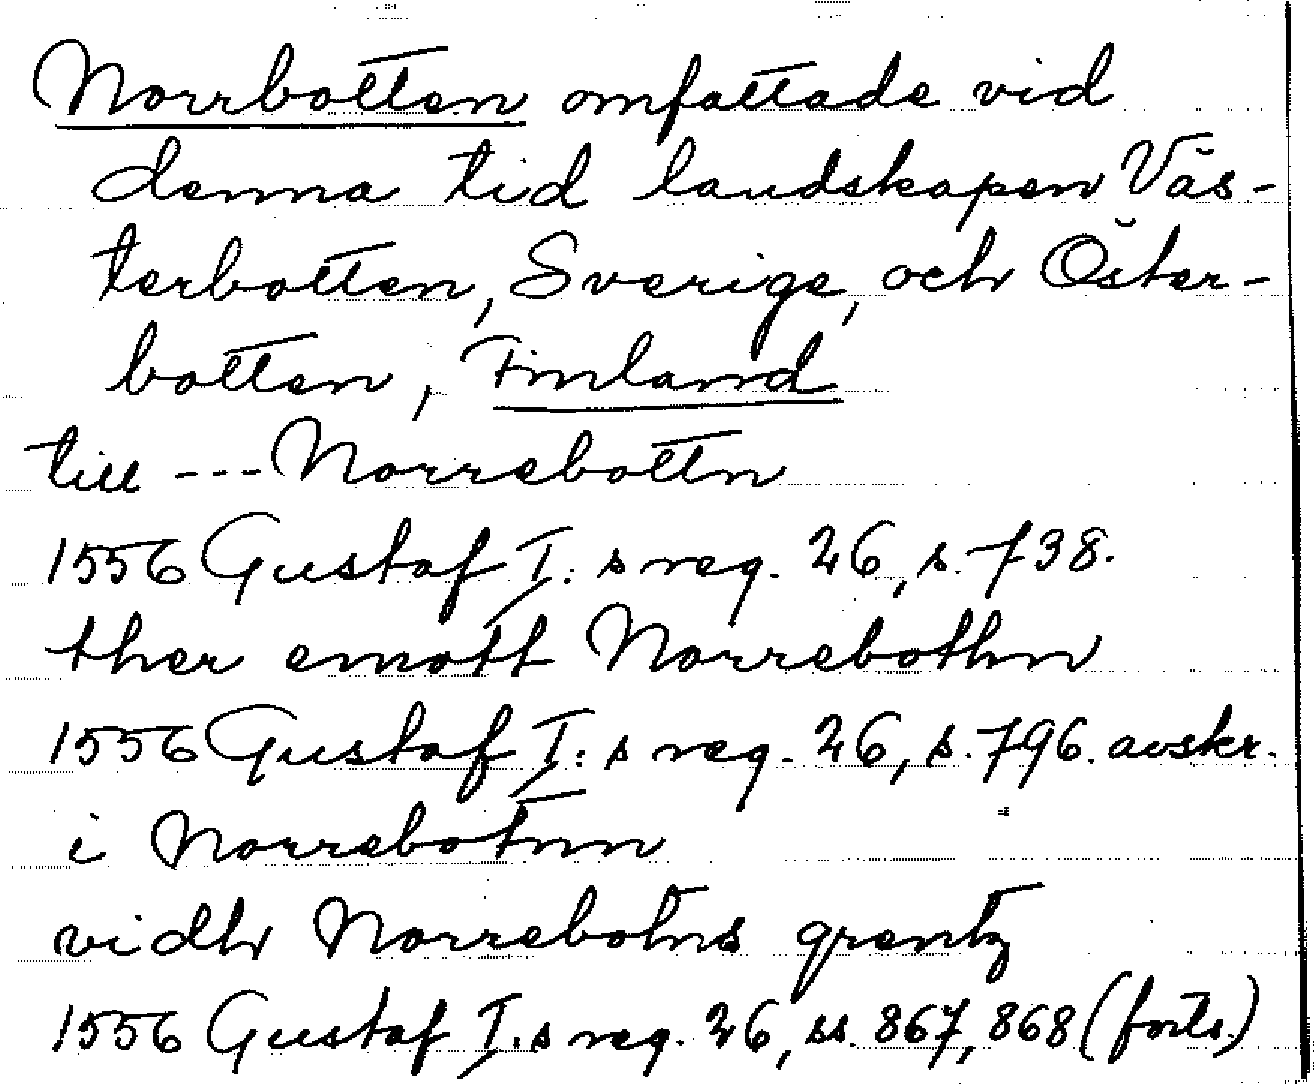 Norrbotten omfattade vid
denna tid landskapen Väs-
terbotten, Sverige, och Öster-
botten, Finland
till --- Norrebottn
1556 Gustaf I: s reg. 26, s. 738.
ther emott Norrebothn
1556 Gustaf I: s reg. 26, s. 796. avskr.
i Norrebotnn
vidh Norrebotns grentz
1556 Gustaf I. s reg. 26, ss. 867, 868 (forts.)